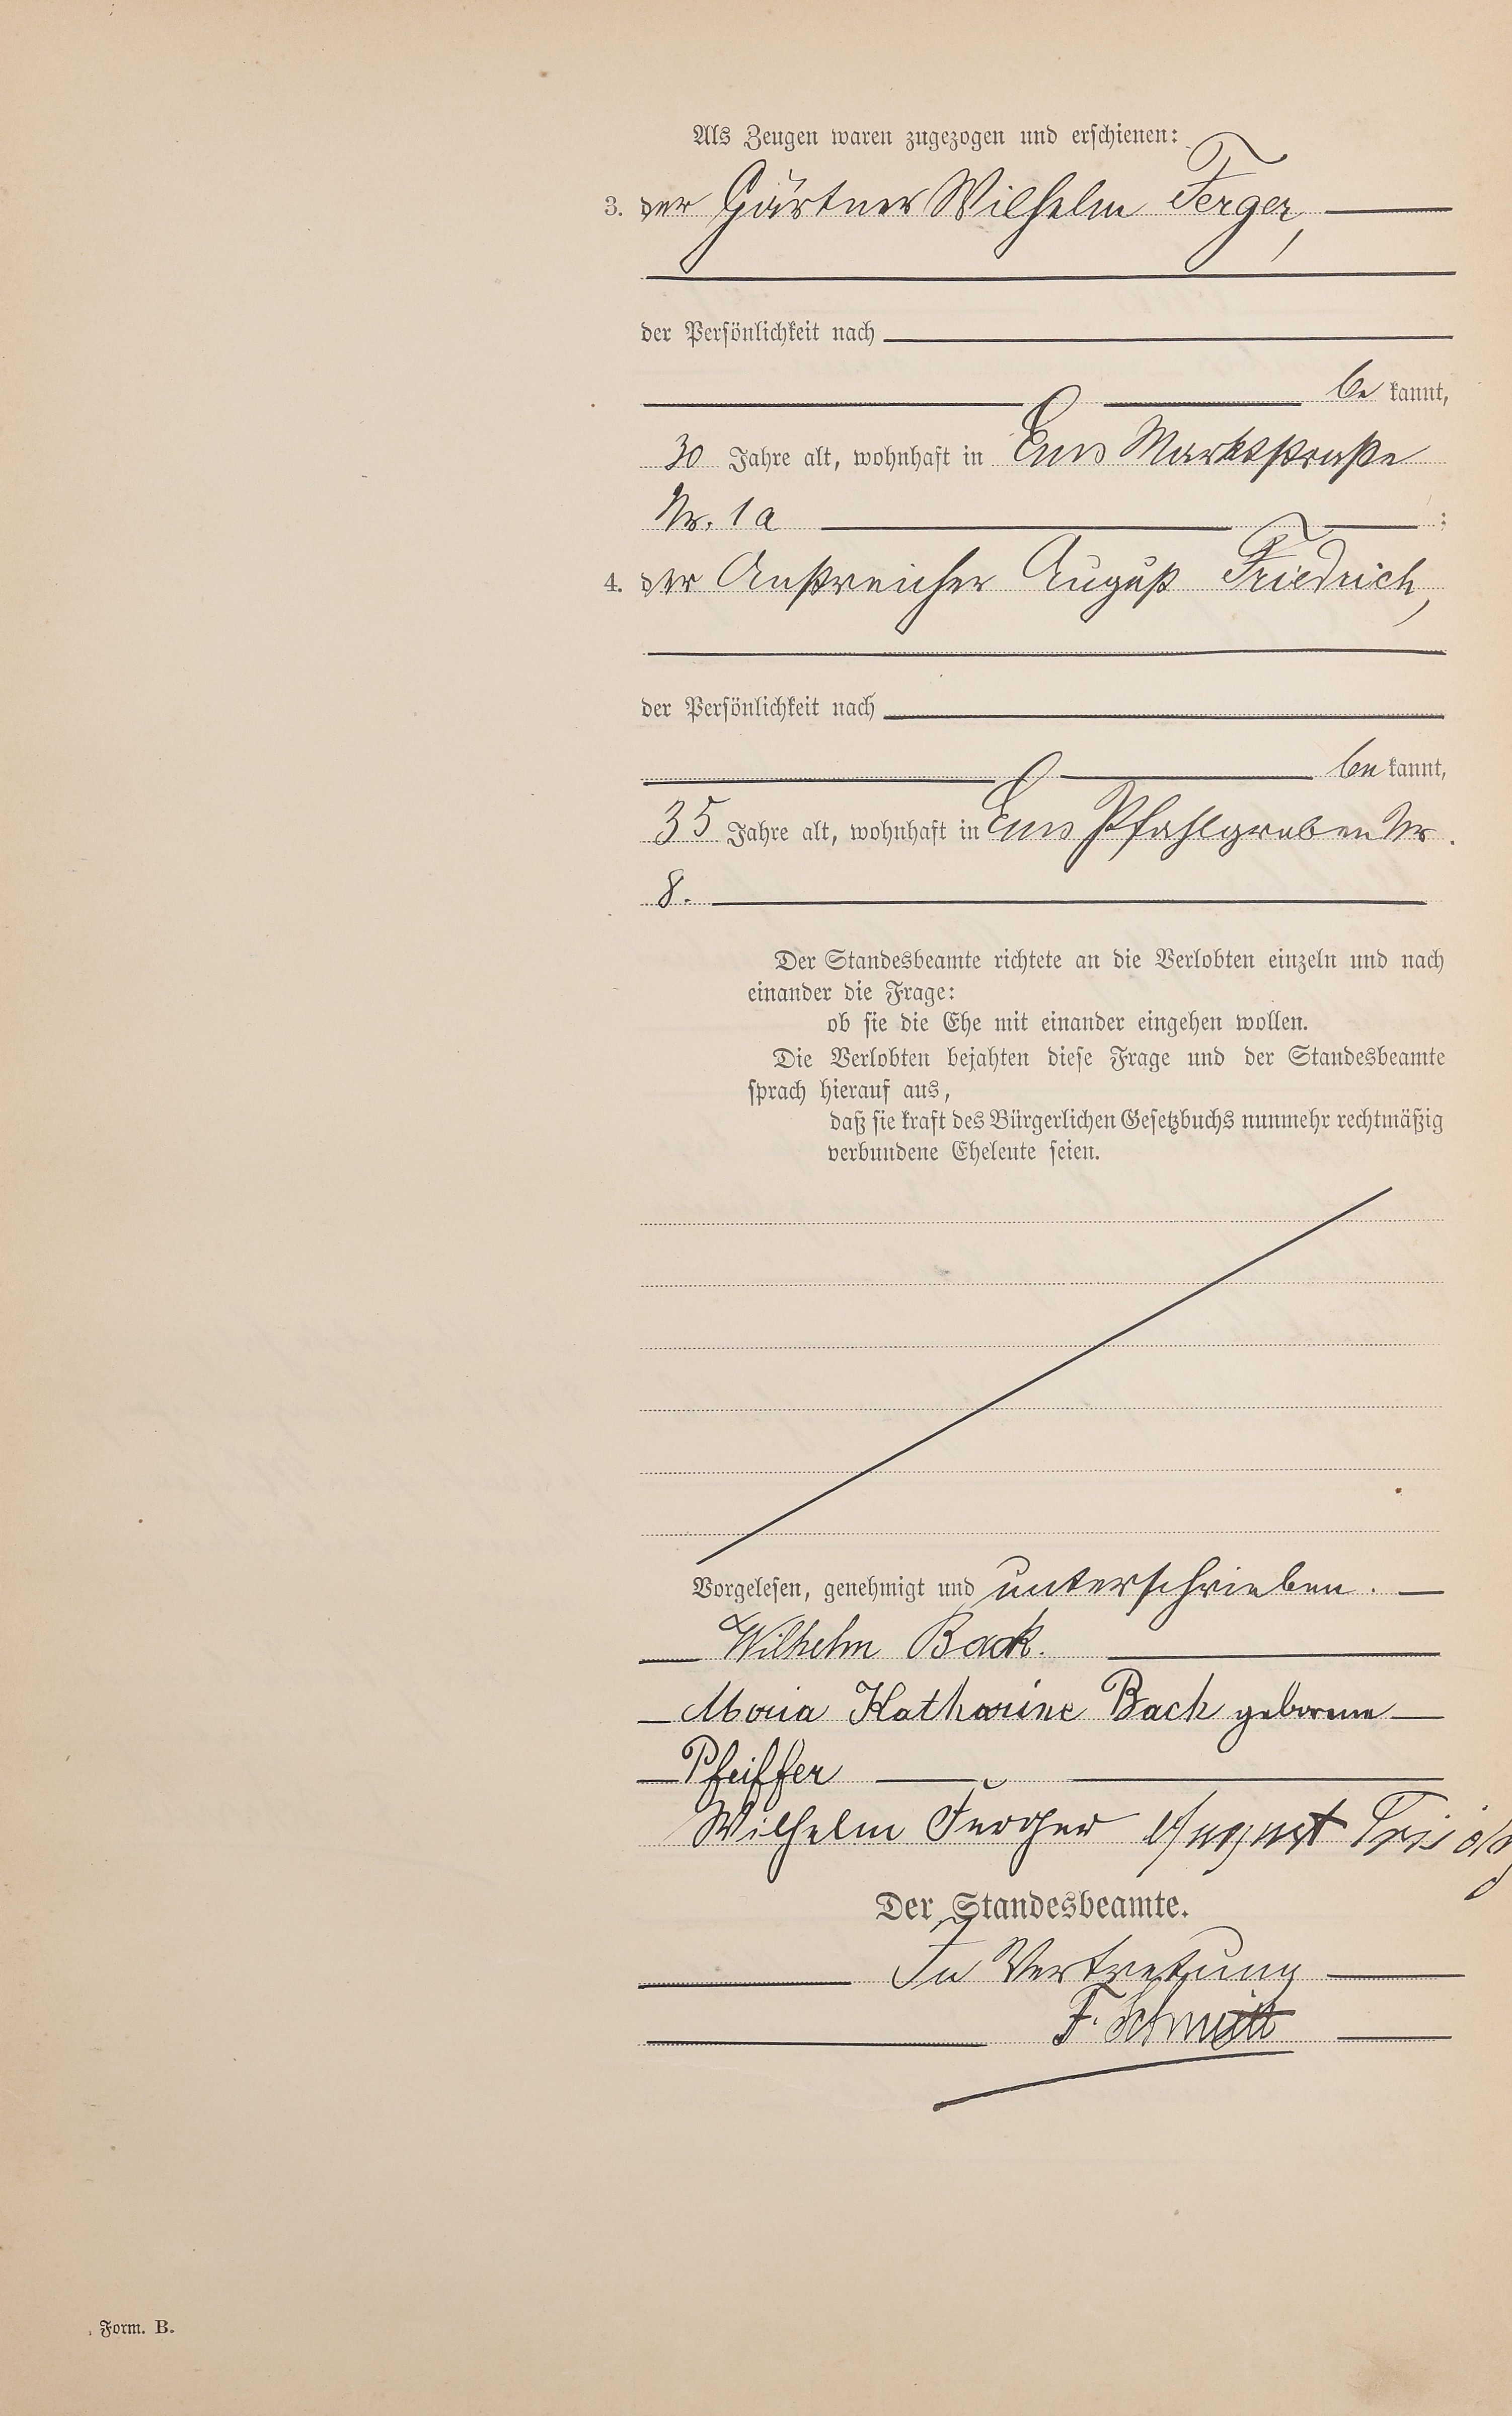 Als Zeugen waren zugezogen und erschienen:
3. der Gärtner Wilhelm Ferger,
der Persönlichkeit nach
be kannt,
30 Jahre alt, wohnhaft in Ems Marktstraße
Nr. 1a :
4. der Anstreicher August Friedrich,
der Persönlichkeit nach
be kannt,
35 Jahre alt, wohnhaft in Ems Pfahlgraben Nr.
8.
Der Standesbeamte richtete an die Verlobten einzeln und nach
einander die Frage:
ob sie die Ehe mit einander eingehen wollen.
Die Verlobten bejahten diese Frage und der Standesbeamte
sprach hierauf aus,
daß sie kraft des Bürgerlichen Gesetzbuchs nunmehr rechtmäßig
verbundene Eheleute seien.
Vorgelesen, genehmigt und unterschrieben.
Wilhelm Back.
Maria Katharine Back geborene
Pfeiffer
Wilhelm Ferger August
Der Standesbeamte.
In Vertretung
F. Schmitt
Form. B.